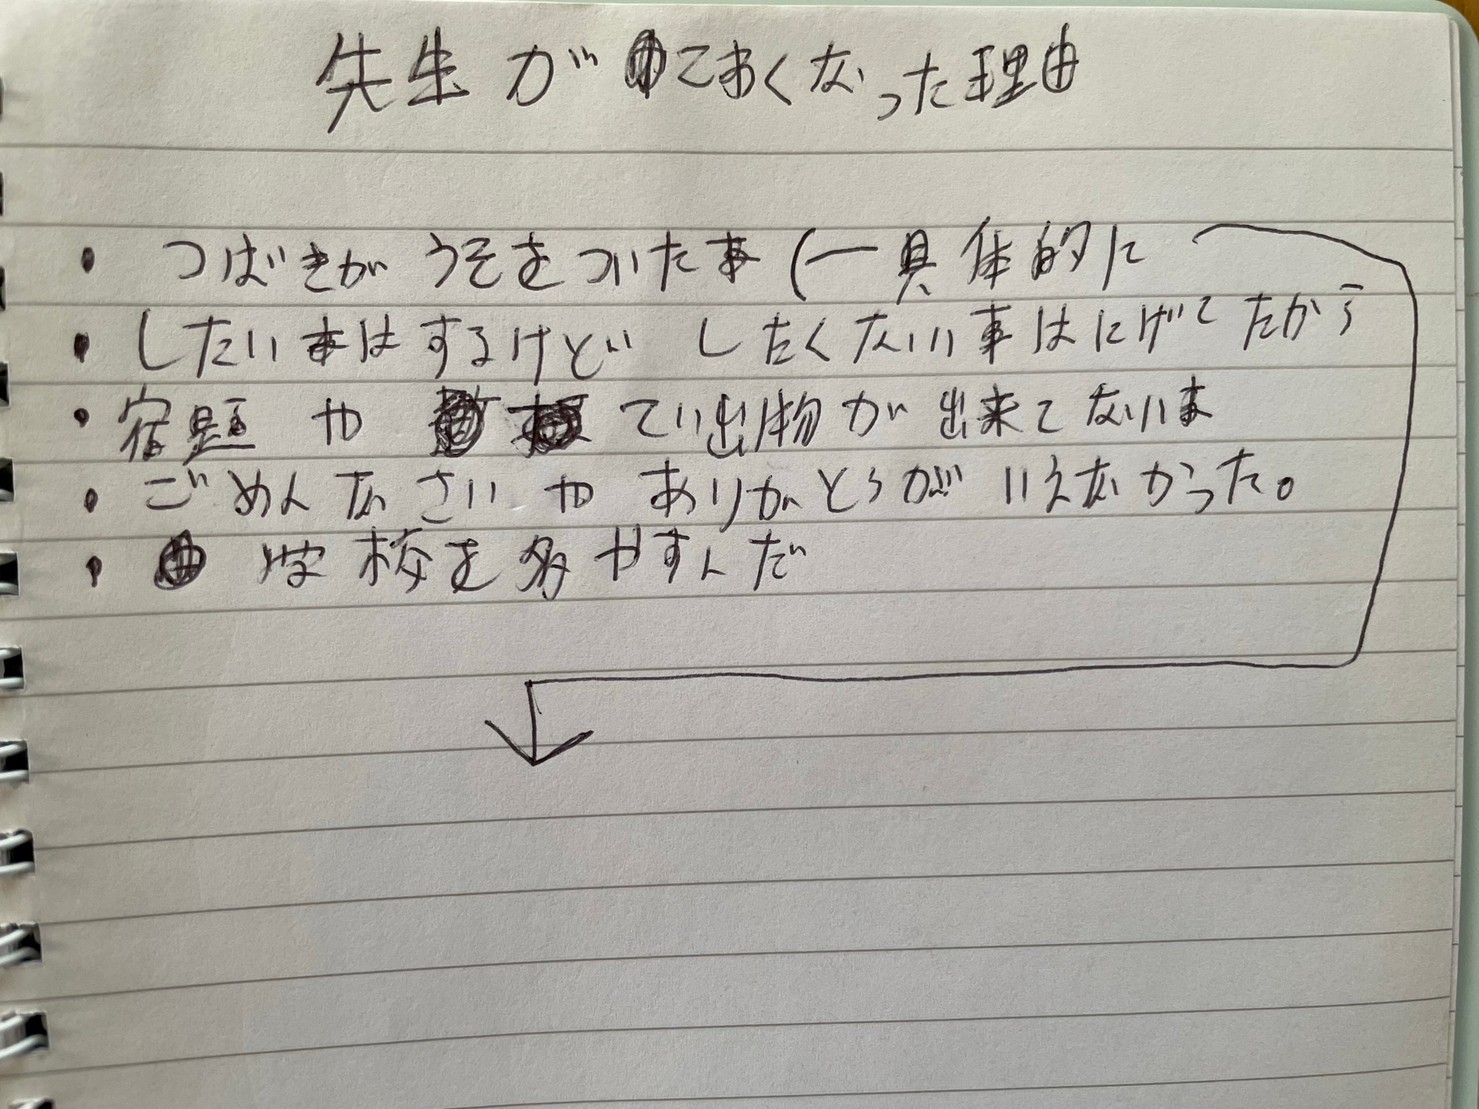 先生がこおくなった理由
・つばきがうそをついた事(一具体的に
・したい事はするけど したくない事はにげてたから
・宿題や てい出物が出来てない事
・ごめんなさいや ありがとうが いえなかった。
・学校を多やすんだ